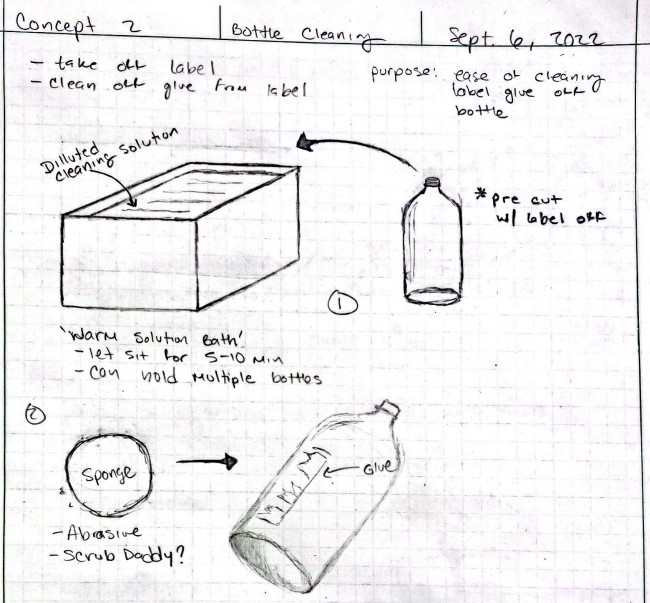 Concept 2 | Bottle Cleaning | Sept. 6, 2022
- take off label
- clean off glue from label
purpose: ease of cleaning
label glue off
bottle
Dilluted
cleaning solution
* pre cut
w/ label off
1
'Warm Solution Bath'
- let sit for 5-10 min
- Can hold multiple bottles
2
Sponge
Glue
- Abrasive
- Scrub Daddy?